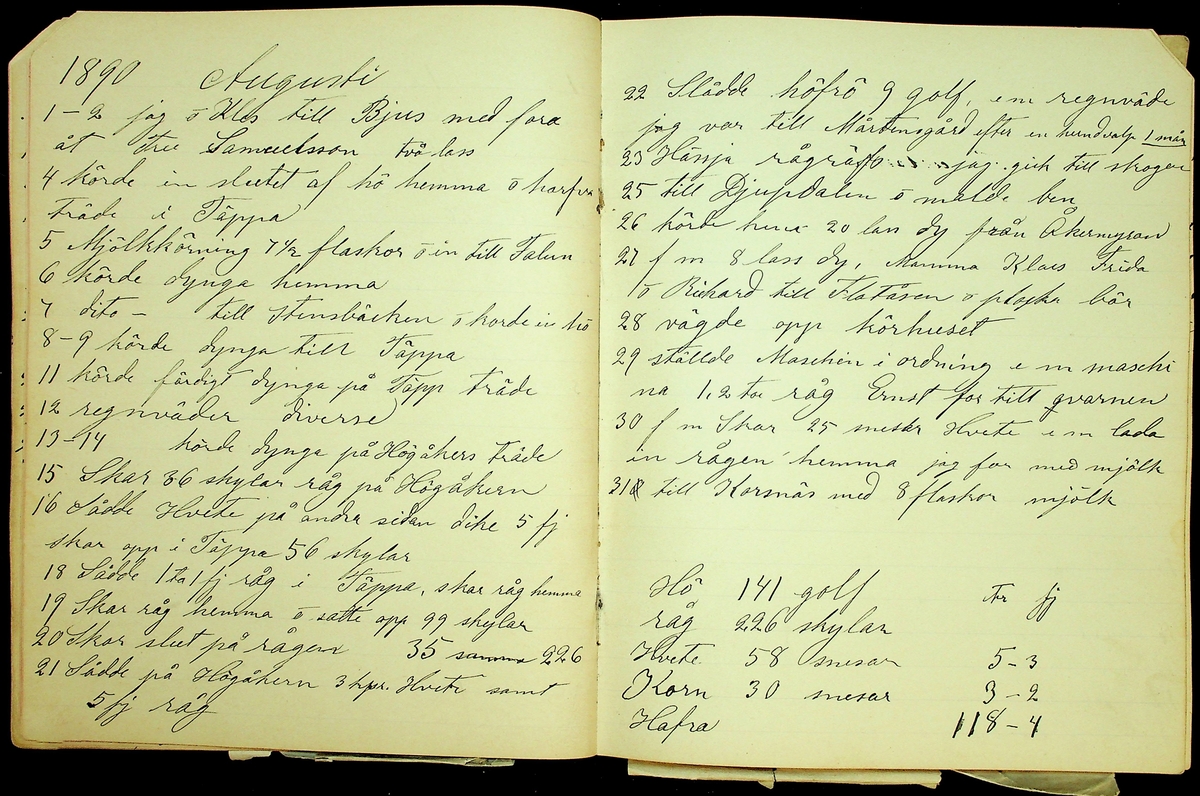 1890 Augusti
1-2 jag o Klas till Bjus med fora
åt Samuelsson två lass
4 körde in slutet af hö hemma o harfva
träde i Täppa
5 Mjölkkörning 7 1/2 flaskor o in till Falun
6 körde dynga hemma
7 dito - till Stensbäcken o körde in hö
8-9 körde dynga till Täppa
11 körde färdigt dynga på Täpp träde
12 regnväder diverse
13-14 körde dynga på Högåkers träde
15 Skar 36 skylar råg på Högåkern
16 Sådde Hvete på andra sidan dike 5 fj
skar opp i Täppa 56 skylar
18 Sådde 1 ta 1 fj råg i Täppa, skar råg hemma
19 Skar råg hemma o satte opp 99 skylar
20 Skar slut på rågen 35 summa 226
21 Sådde på Högåkern 3 kpr. Hvete samt
5 fj råg
22 Slådde höfrö 9 golf, e m regnväde
jag var till Mårtensgård efter en hundvalp 1 mån
23 Hänja jag gick till skogen
25 till Djupdalen o malde ben
26 körde hem 20 las dy från Åkermyran
27 f m 8 lass dy, Mamma Klas Frida
o Rickard till Flatåsen o plocka bär
28 vägde opp hörhuset
29 ställde Maschin i ordning e m maschi
na 1,2 tor råg Ernst for till qvarnen
30 f m Skar 25 mesar Hvete e m lada
in rågen hemma jag for med mjölk
31 till Korsnäs med 8 flaskor mjölk
Hö 141 golf Tr fj
råg 226 skylar
Hvete 58 snesar 5-3
Korn 30 snesar 3-2
Hafra 118-4